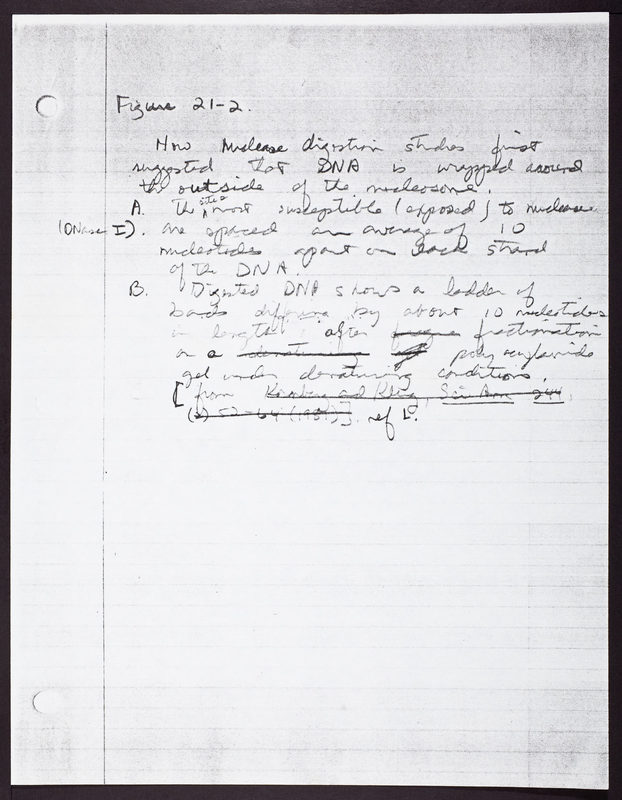 Figure 21-2.
How nuclease digestion studies first
suggested that DNA is wrapped around
the outside of the nucleosome.
A. The sites most susceptible (exposed) to nuclease
(DNase I). are spaced an average of 10
nucleotides apart on each strand
of the DNA.
B. Digested DNA shows a ladder of
bands differing by about 10 nucleotides
in length after fractionation
on a denaturing polyacrylamide
gel under denaturing conditions.
[from Kornberg and Klug, Sci Am 244,
(2) 52-64 (1981)]. ref